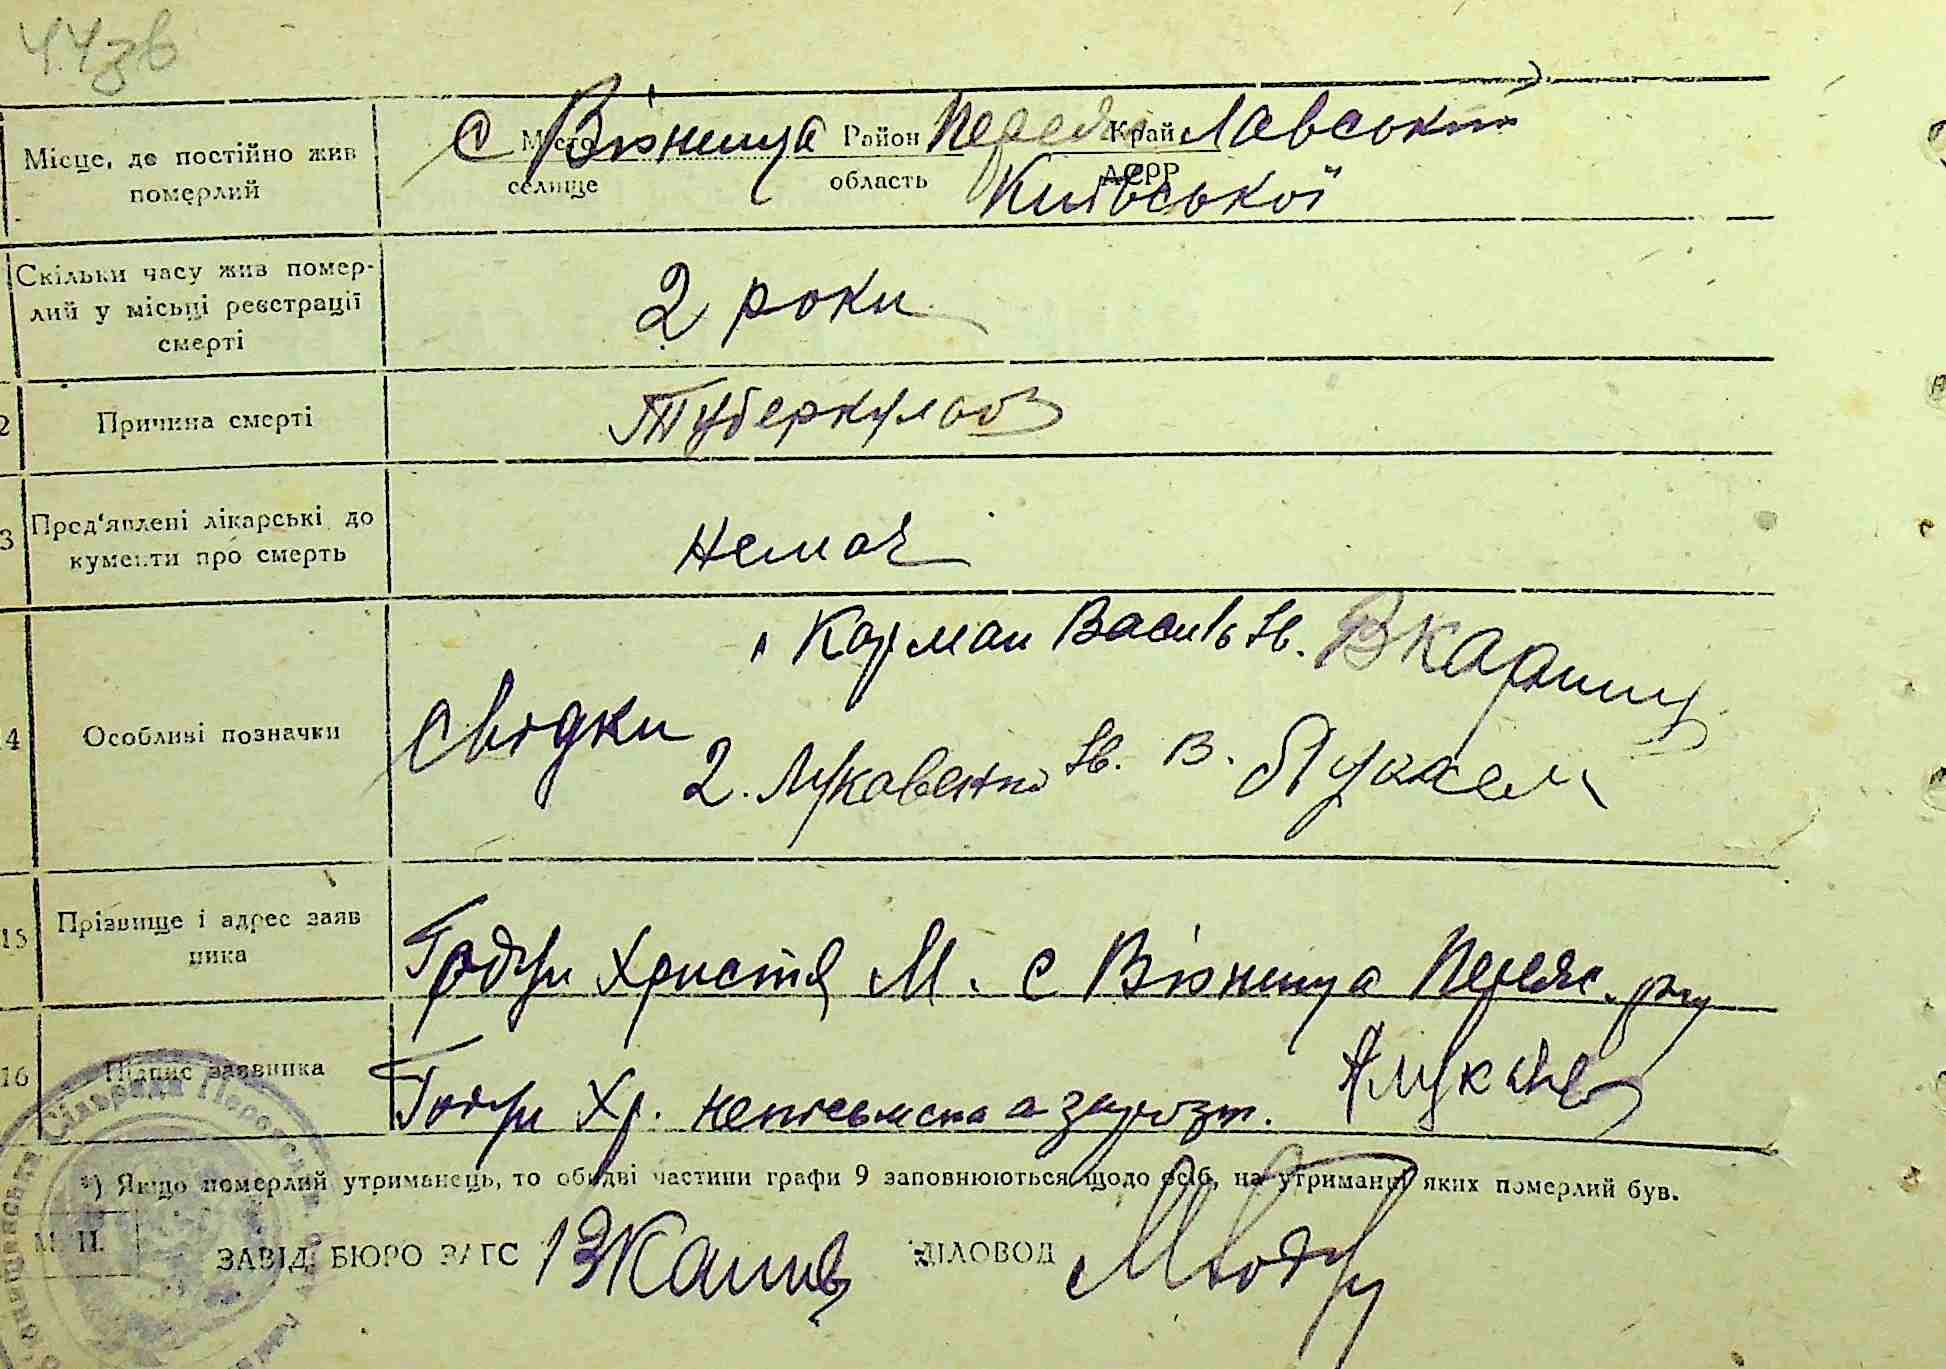 44зв
Місце, де постійно жив
померлий
с Місто Вюнища Район Переяславський Край
селище область АСРР
Київської
Скільки часу жив помер-
лий у місьці реєстрації
смерті
2 роки
2 Причина смерті
Туберкульоз
3 Пред'явлені лікарські до
кументи про смерть
Немає
4 Особливі позначки
Свідки
Карман Василь Ів.
2. Лукавенко Ів. В.
15 Прізвище і адрес заяв
ника
Христя М. с Вюнища Переяс. р-ну
16 Підпис заявника
Хр. неписьмена а
*) Якщо померлий утриманець, то обидві частини графи 9 заповнюються щодо осіб, на утриманні яких померлий був.
М. П.
ЗАВІД. БЮРО ЗАГС ДІЛОВОД